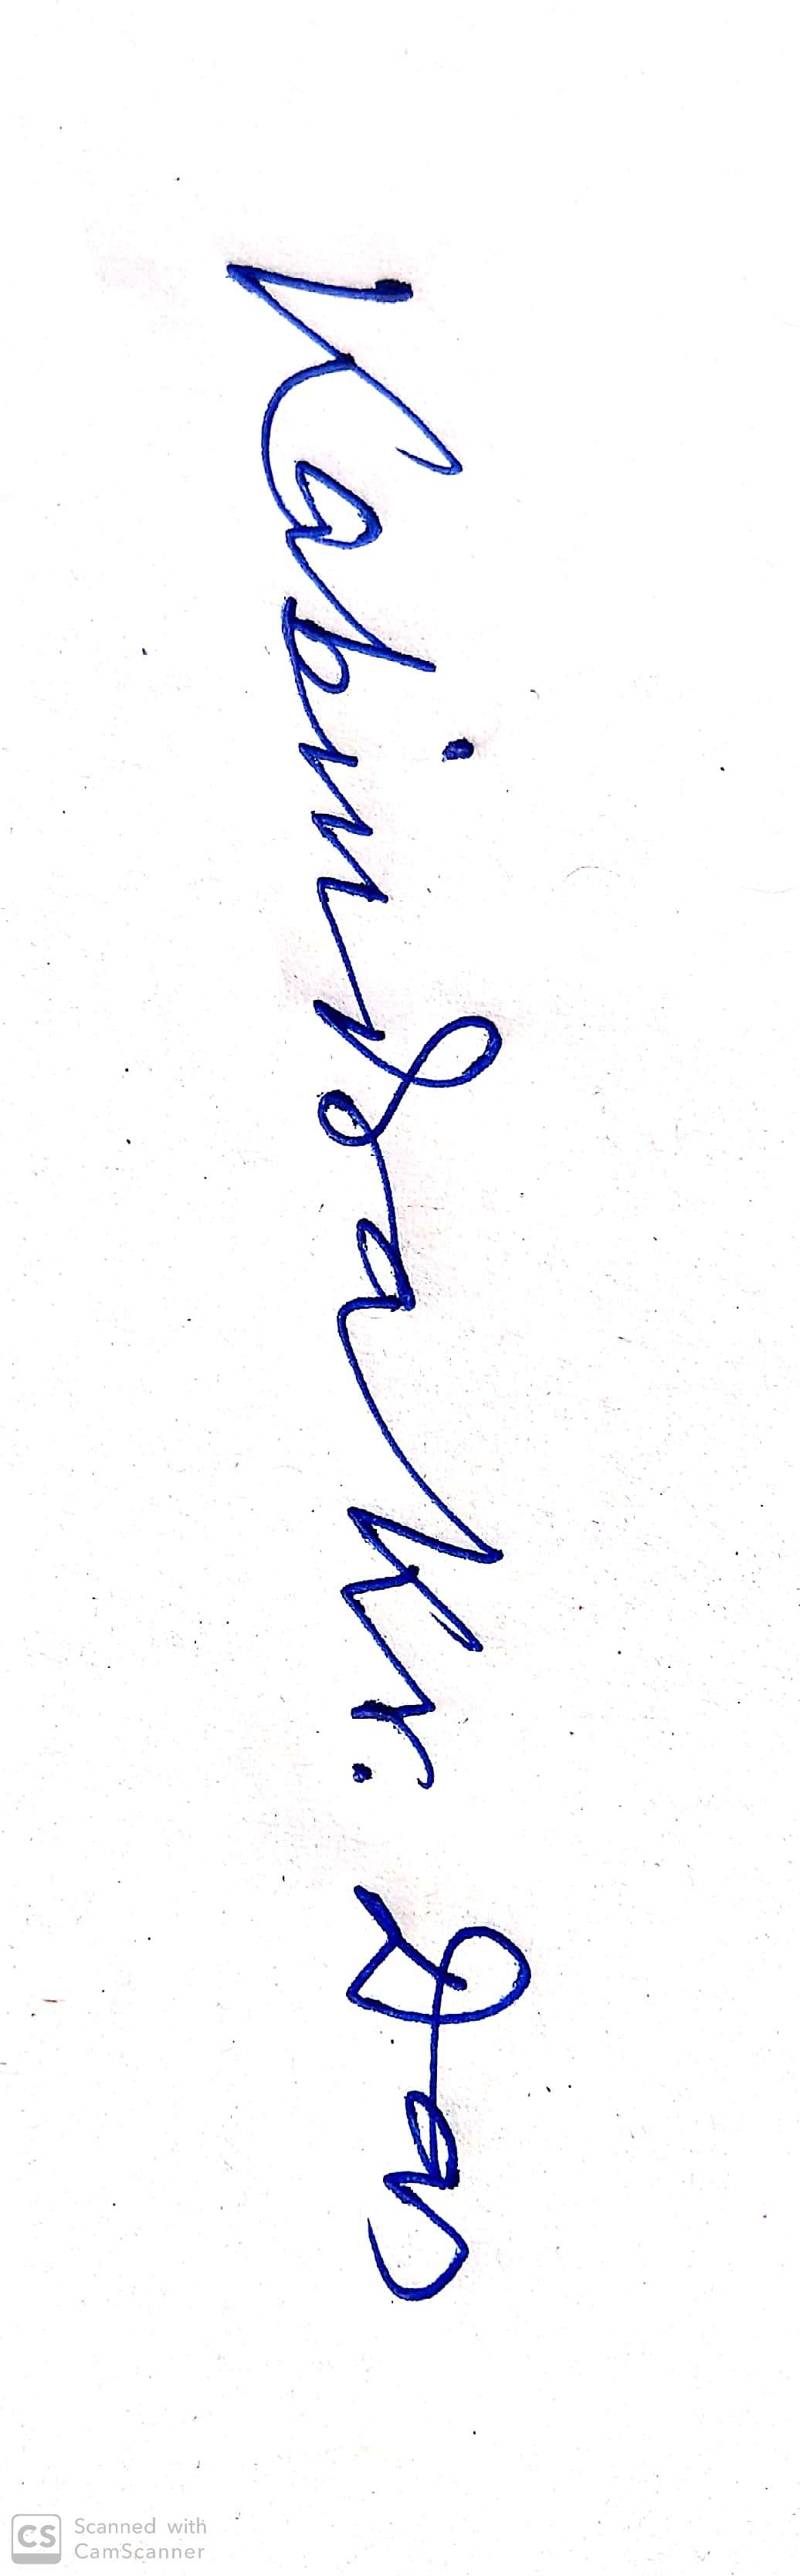 Kabindra Kr. Das
Scanned with
CamScanner
CS